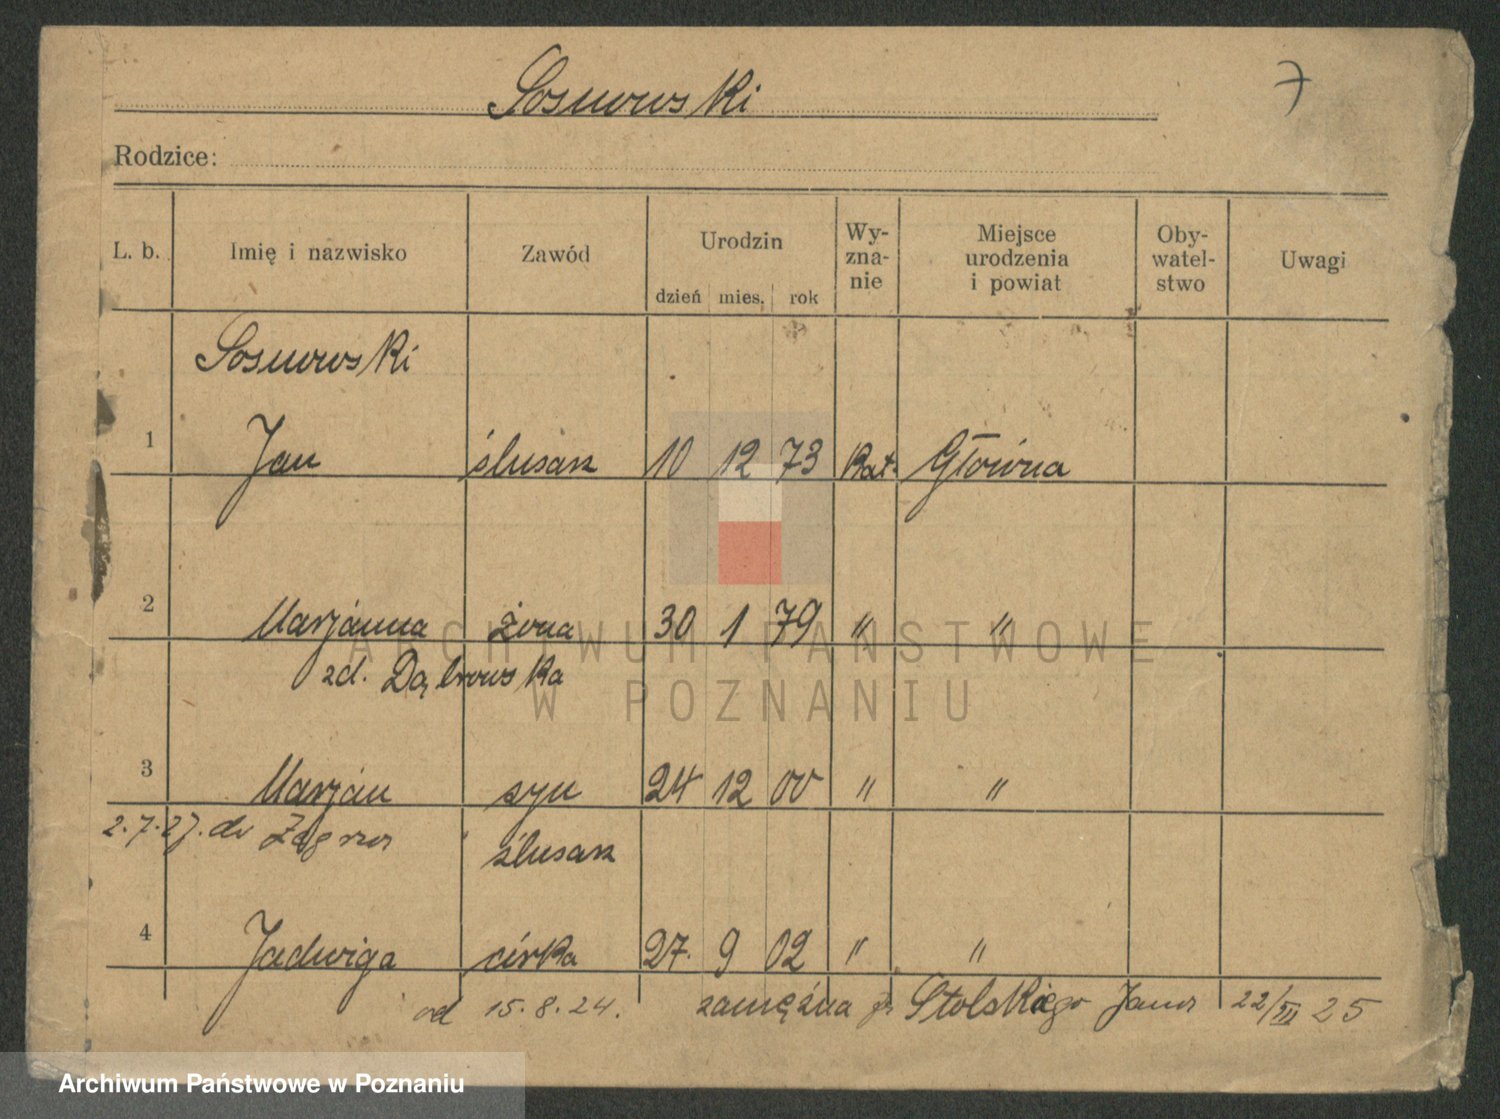 Sosnowski
7
Rodzice:
L. b. Imię i nazwisko Zawód Urodzin dzień mies. rok Wy-zna-nie Miejsce urodzenia i powiat Oby-watel-stwo Uwagi
Sosnowski
1 Jan ślusarz 10 12 73 kat. Główna
2 Marjanna żona 30 1 79 〃 〃
zd. Dąbrowska
3 Marjan syn 24 12 00 〃 〃
2.7.27. do Zegrza ślusarz
4 Jadwiga córka 27. 9 02 〃 〃
od 15.8.24. zamężna Stolskiego Jana 22/III 25
ARCHIWUM PAŃSTWOWE
W POZNANIU
Archiwum Państwowe w Poznaniu